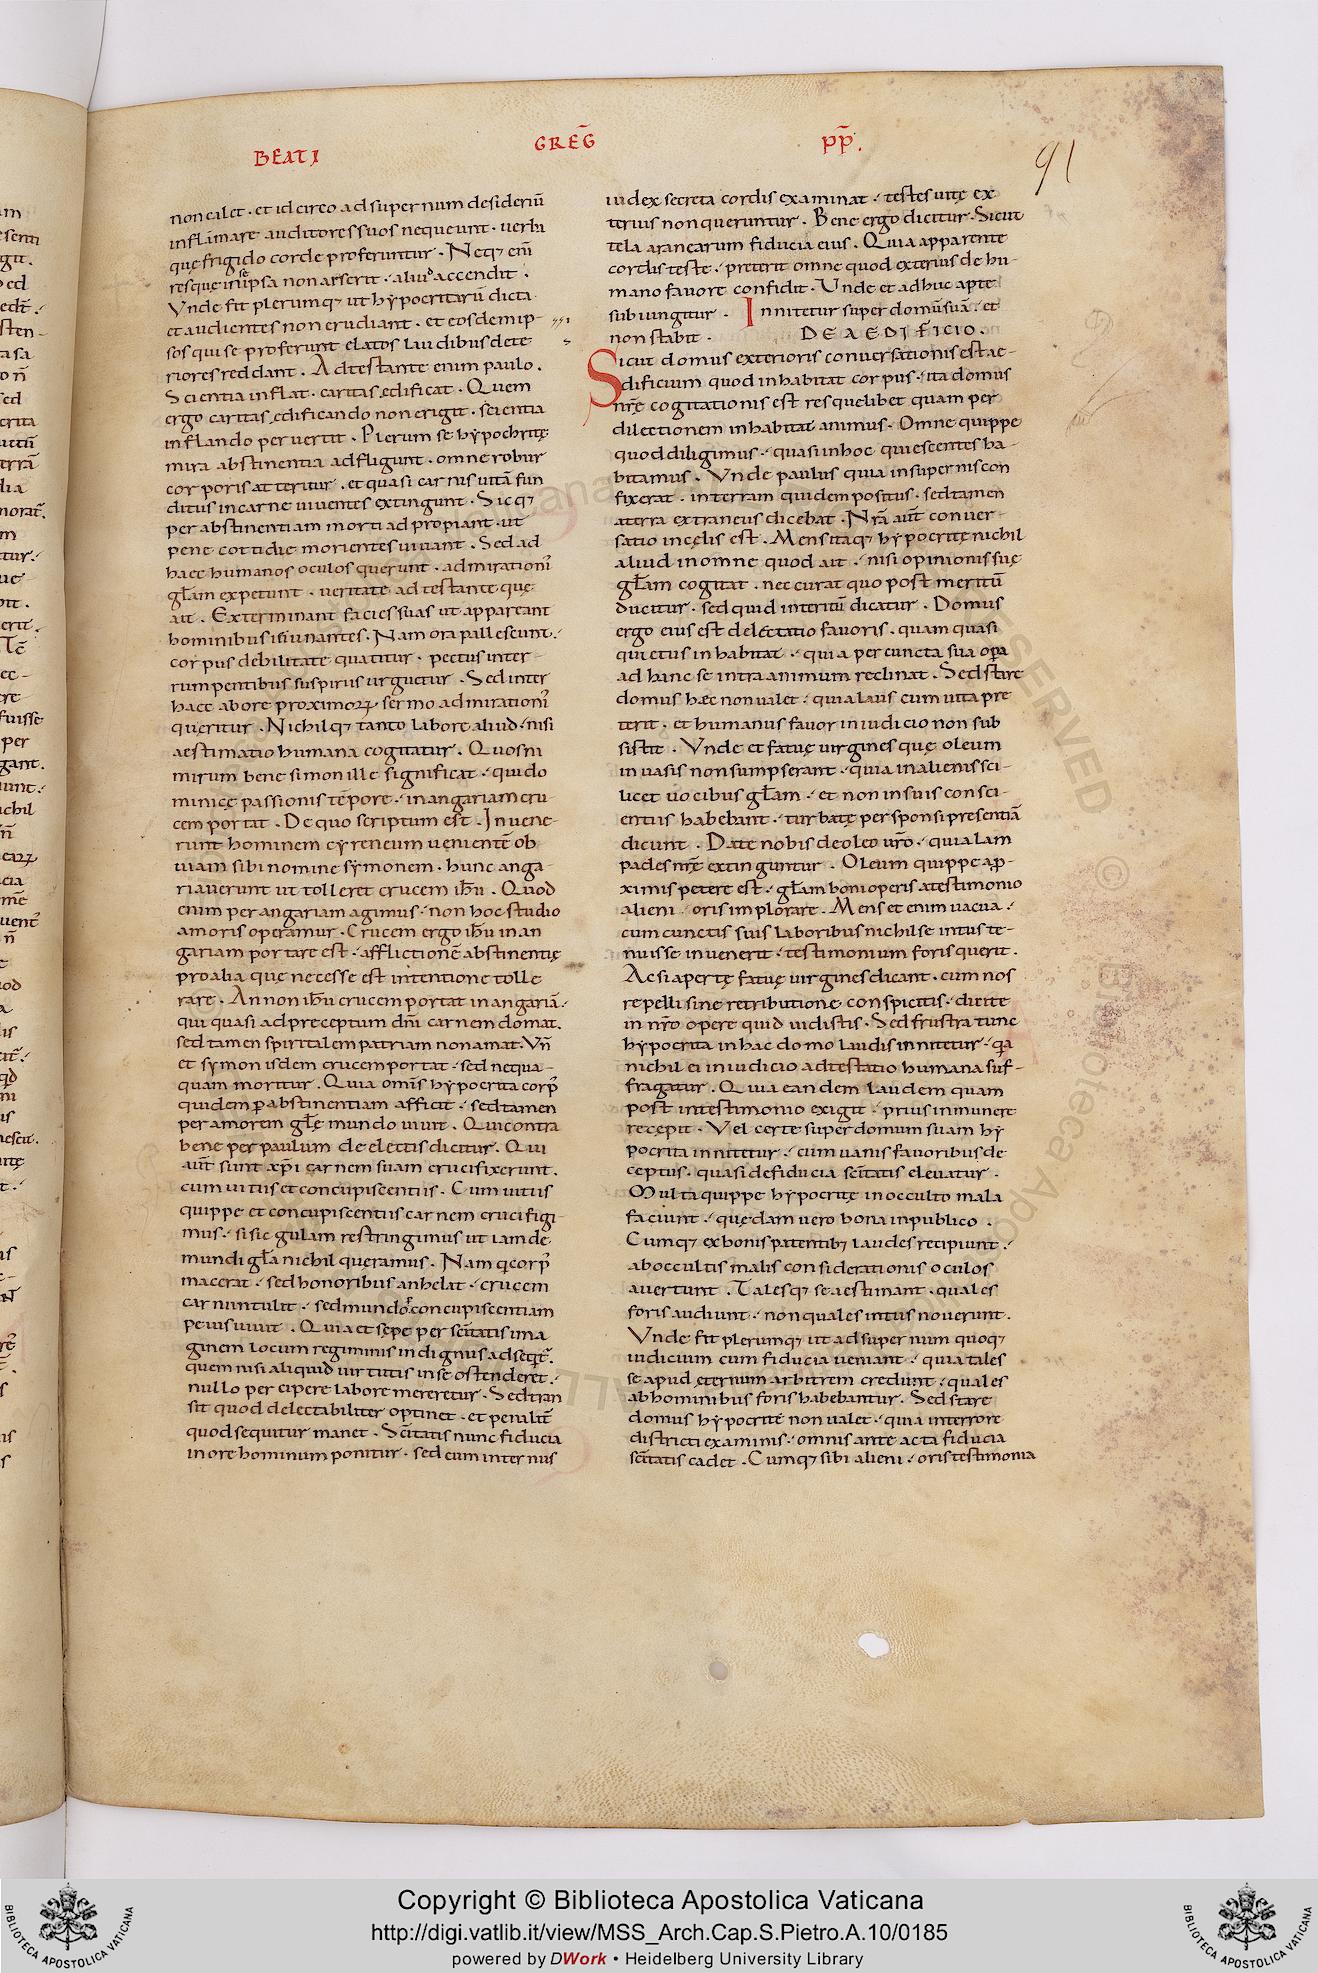 BEATI GREḠ PP̄.
91
non calet · et idcirco ad supernum desideriū
inflammare auditores suos nequeunt · uerba
quę frigido corde proferuntur · Neq; eni̅
res quę in se ipsa non arserit · aliud accendit ·
Vnde fit plerumq; ut hypocritarū dicta
et audientes non erudiant · et eosdem ip-
sos qui se proferunt elatos laudibus dete
riores reddant · Adtestante enim paulo ·
Scientia inflat · caritas ędificat · Quem
ergo caritas ędificando non erigit · scientia
inflando peruertit · Plerum se hypochritę
mira abstinentia adfligunt · omne robur
corporis atteritur · et quasi carnis uitā fun
ditus in carne uiuentes extingunt · Sicq;
per abstinentiam morti adpropiant · ut
pene cottidie morientes uiuant · Sed ad
haec humanos oculos querunt · admirationi᷒
gl̅am expetunt · ueritate adtestante quę
ait · Exterminant facies suas ut appareant
hominibus ieiunantes · Nam ora pallescunt ·
corpus debilitate quatitur · pectus inter-
rumpentibus suspiriis urguetur · Sed inter
haec abore proximorꝝ sermo admirationi᷒
quęritur · Nichilq; tanto labore aliud · nisi
aestimatio humana cogitatur · Quos ni
mirum bene simon ille significat · qui do
minicę passionis tēpore · in angariam cru
cem portat · De quo scriptum est · Inuene-
runt hominem cyreneum uenientē ob
uiam sibi nomine symonem · hunc anga-
riauerunt ut tolleret crucem ih̅u · Quod
enim per angariam agimus · non hoc studio
amoris operamur · Crucem ergo ih̅u in an
gariam portare est · afflictionē abstinentię
pro alia que necesse est intentione tolle
rare · An non ih̅u crucem portat in angariā ·
qui quasi ad preceptum dn̅i carnem domat ·
sed tamen spiritalem patriam non amat · Vn̅
et symon isdem crucem portat · sed nequa-
quam moritur · Quia omis᷒ hypocrita corp᷒
quidem ꝑ abstinentiam afficit · sed tamen
per amorem gl̅ę mundo uiuit · Qui contra
bene per paulum de electis dicitur · Qui
aut̅ sunt xp̅i carnem suam crucifixerunt ·
cum uitiis et concupiscentiis · Cum uitiis
quippe et concupiscentiis carnem crucifigi-
mus · si sic gulam restringimus ut iam de
mundi gl̅a nichil queramus · Nam q̇ corp᷒
macerat · sed honoribus anhelat · crucem
carni intulit · sed mundo ꝛ concupiscentiam
peius uiuit · Quia et sepe per sc̅itatis ima
ginem locum regiminis indignus adseqt̅ ·
quem nisi aliquid uirtutis in se ostenderet ·
nullo percipere labore mereretur · Sed tran
sit quod delectabiliter optinet · et penalit̅
quod sequitur manet · Sc̅itatis nunc fiducia
in ore hominum ponitur · sed cum internus
iudex secreta cordis examinat · testes uitę ex
terius non queruntur · Bene ergo dicitur · Sicut
tela aranearum fiducia eius · Quia apparente
cordis teste · preterit omne quod exterius de hu-
mano fauore confidit · Unde et adhuc apte
subiungitur · Innitetur super domū suā · et
non stabit · DE AEDIFICIO ·
Sicut domus exterioris conuersationis est ae-
dificium quod inhabitat corpus · ita domus
nr̅ę cogitationis est res quelibet quam per
dilectionem inhabitat animus · Omne quippe
quod diligimus · quasi in hoc quiescentes ha-
bitamus · Vnde paulus quia in supernis con
fixerat · in terram quidem positus · sed tamen
a terra extraneus dicebat · Nr̅a aut̅ conuer-
satio in cęlis est · Mens itaq; hypocritę nichil
aliud in omne quod ait · nisi opinionis suę
gl̅am cogitat · nec curat quo post meritū
ducitur · sed quid interitū dicatur · Domus
ergo eius est delectatio fauoris · quam quasi
quietus inhabitat · quia per cuncta sua opa̅
ad hanc se intra animum reclinat · Sed stare
domus haec non ualet · quia laus cum uita pre
terit · et humanus fauor in iudicio non sub
sistit · Vnde et fatuę uirgines quę oleum
in uasis non sumpserant · quia in alienis sci-
licet uocibus gl̅am · et non in suis consci-
entiis habebant · turbatę per sponsi presentiā
dicunt · Date nobis de oleo ur̅o · quia lam
pades nr̅ę extinguntur · Oleum quippe a ꝓ-
ximis petere est · gl̅am boni operis a testimonio
alieni oris implorare · Mens etenim uacua ·
cum cunctis suis laboribus nichil se intus te-
nuisse inuenerit · testimonium foris querit ·
Ac si apertę fatuę uirgines dicant · cum nos
repelli sine retributione conspicitis · dicite
in nr̅o opere quid uidistis · Sed frustra tunc
hypocrita in hac domo laudis innitetur · qa̅
nichil ei in iudicio adtestatio humana suf-
fragatur · Quia eandem laudem quam
post in testimonio exigit · prius in munere
recępit · Vel certe super domum suam hy
pocrita innitetur · cum uanis fauoribus de
ceptus · quasi de fiducia sc̅itatis eleuatur ·
Multa quippe hypocritę in occulto mala
faciunt · quędam uero bona in publico ·
Cumq; ex bonis patentib; laudes recipiunt ·
ab occultis malis considerationis oculos
auertunt · Talesq; se aestimant · quales
foris audiunt · non quales intus nouerunt ·
Vnde fit plerumq; ut ad supernum quoq;
iudicium cum fiducia ueniant · quia tales
se apud ęternum arbitrem credunt · quales
ab hominibus foris habebantur · Sed stare
domus hypocritę non ualet · quia in terrore
districti examinis · omnis ante acta fiducia
sc̅itatis cadet · Cumq; sibi alieni · oris testimonia
Copyright © Biblioteca Apostolica Vaticana
http://digi.vatlib.it/view/MSS_Arch.Cap.S.Pietro.A.10/0185
powered by DWork • Heidelberg University Library
BIBLIOTECA APOSTOLICA VATICANA
BIBLIOTECA APOSTOLICA VATICANA